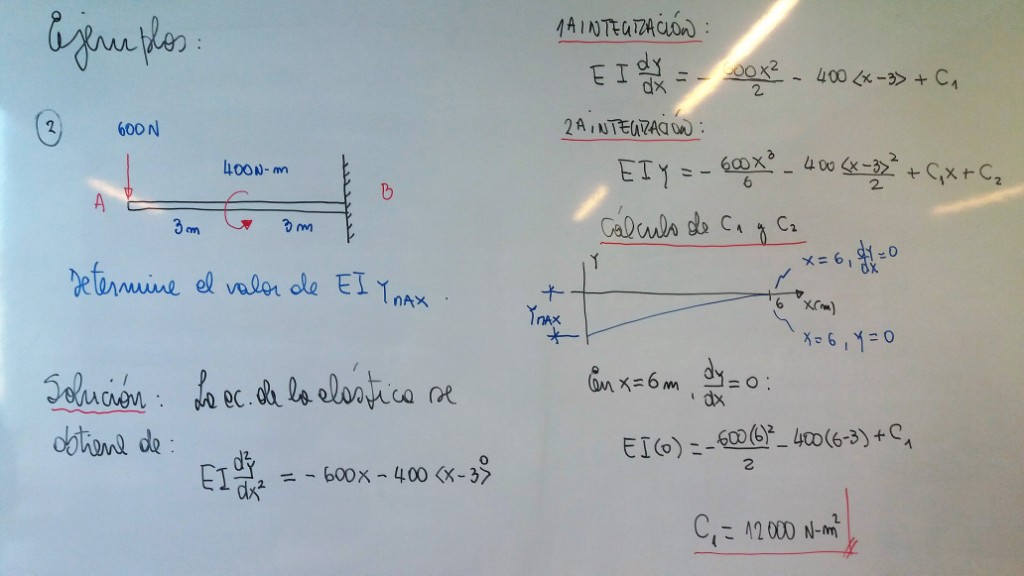 Ejemplos:
2
600N
400N-m
A
B
3m 3m
Determine el valor de EI YMAX.
Solución: La ec. de la elástica se
obtiene de:
EI d²y/dx² = - 600x - 400 <x-3>⁰
1A INTEGRACIÓN:
EI dy/dx = - 600x²/2 - 400 <x-3> + C₁
2A INTEGRACIÓN:
EIY = - 600x³/6 - 400 <x-3>²/2 + C₁x + C₂
Cálculo de C₁ y C₂
Y
x=6, dy/dx=0
6 x(m)
YMAX
x=6, y=0
En x=6m, dy/dx=0:
EI(0) = - 600(6)²/2 - 400(6-3) + C₁
C₁ = 12000 N-m²